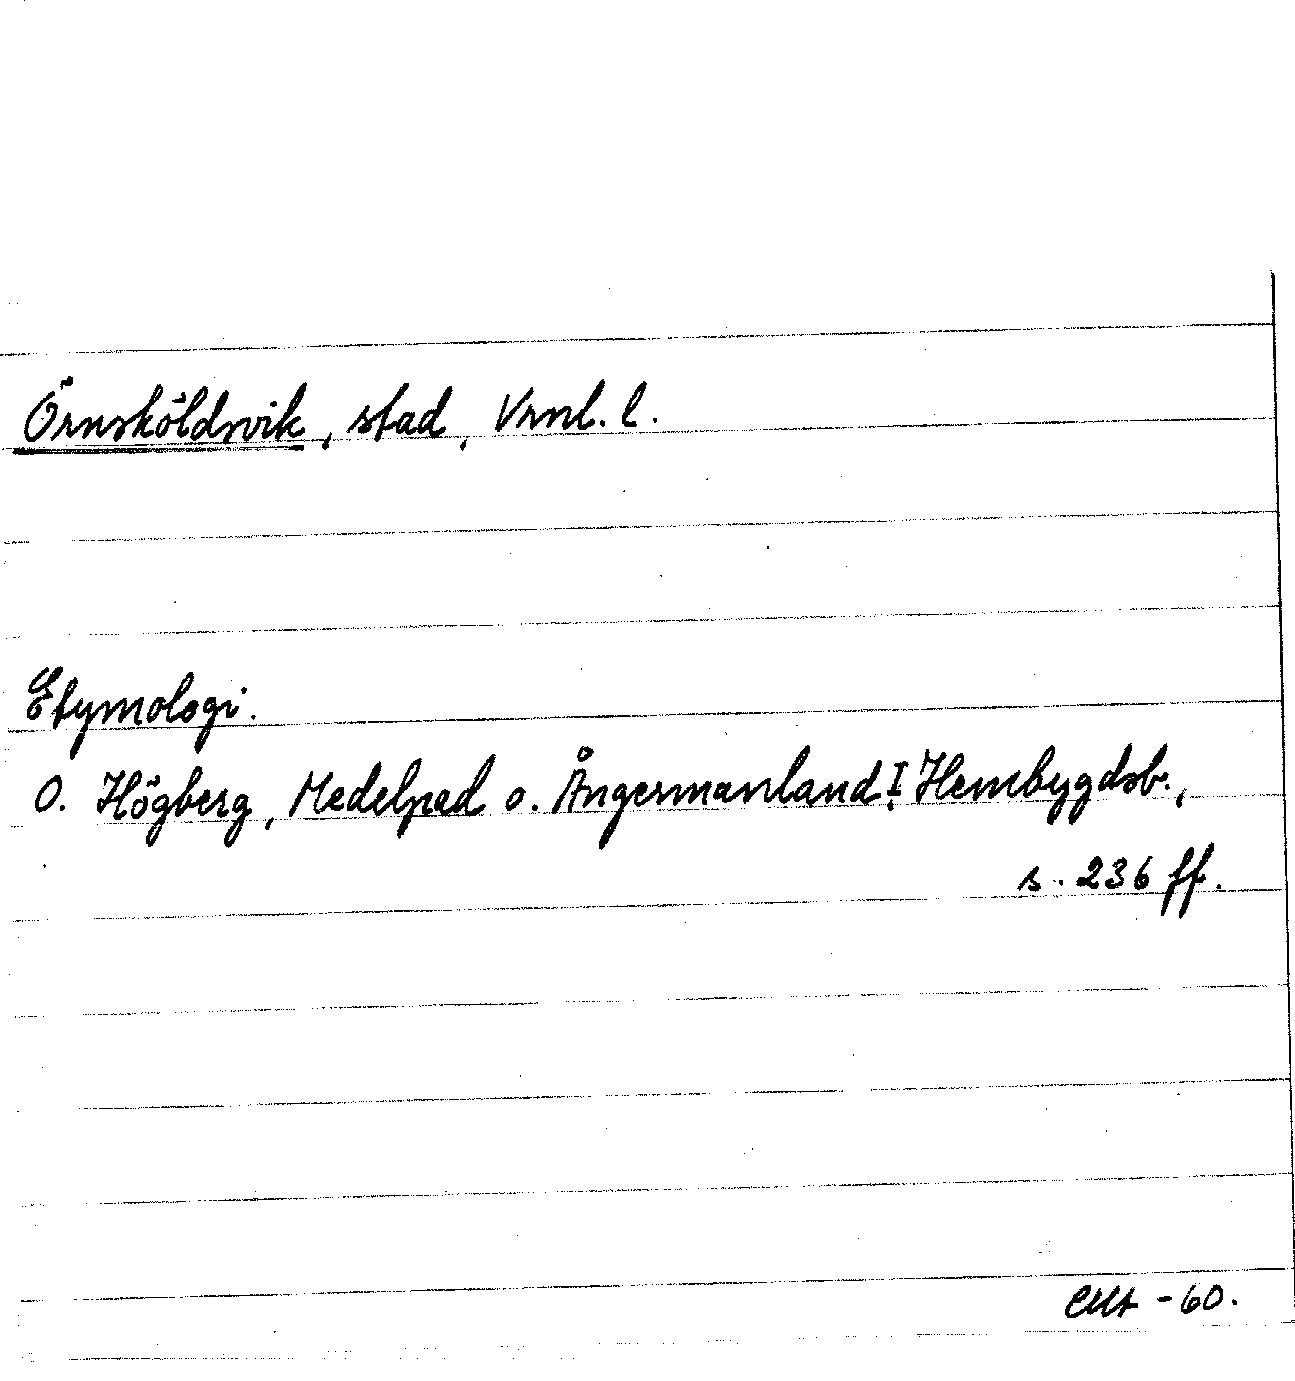 Örnsköldsvik, stad, Vrnl. l.
Etymologi.
O. Högberg, Medelpad o. Ångermanland I. Hembygdsb.,
s. 236 ff.
-60.